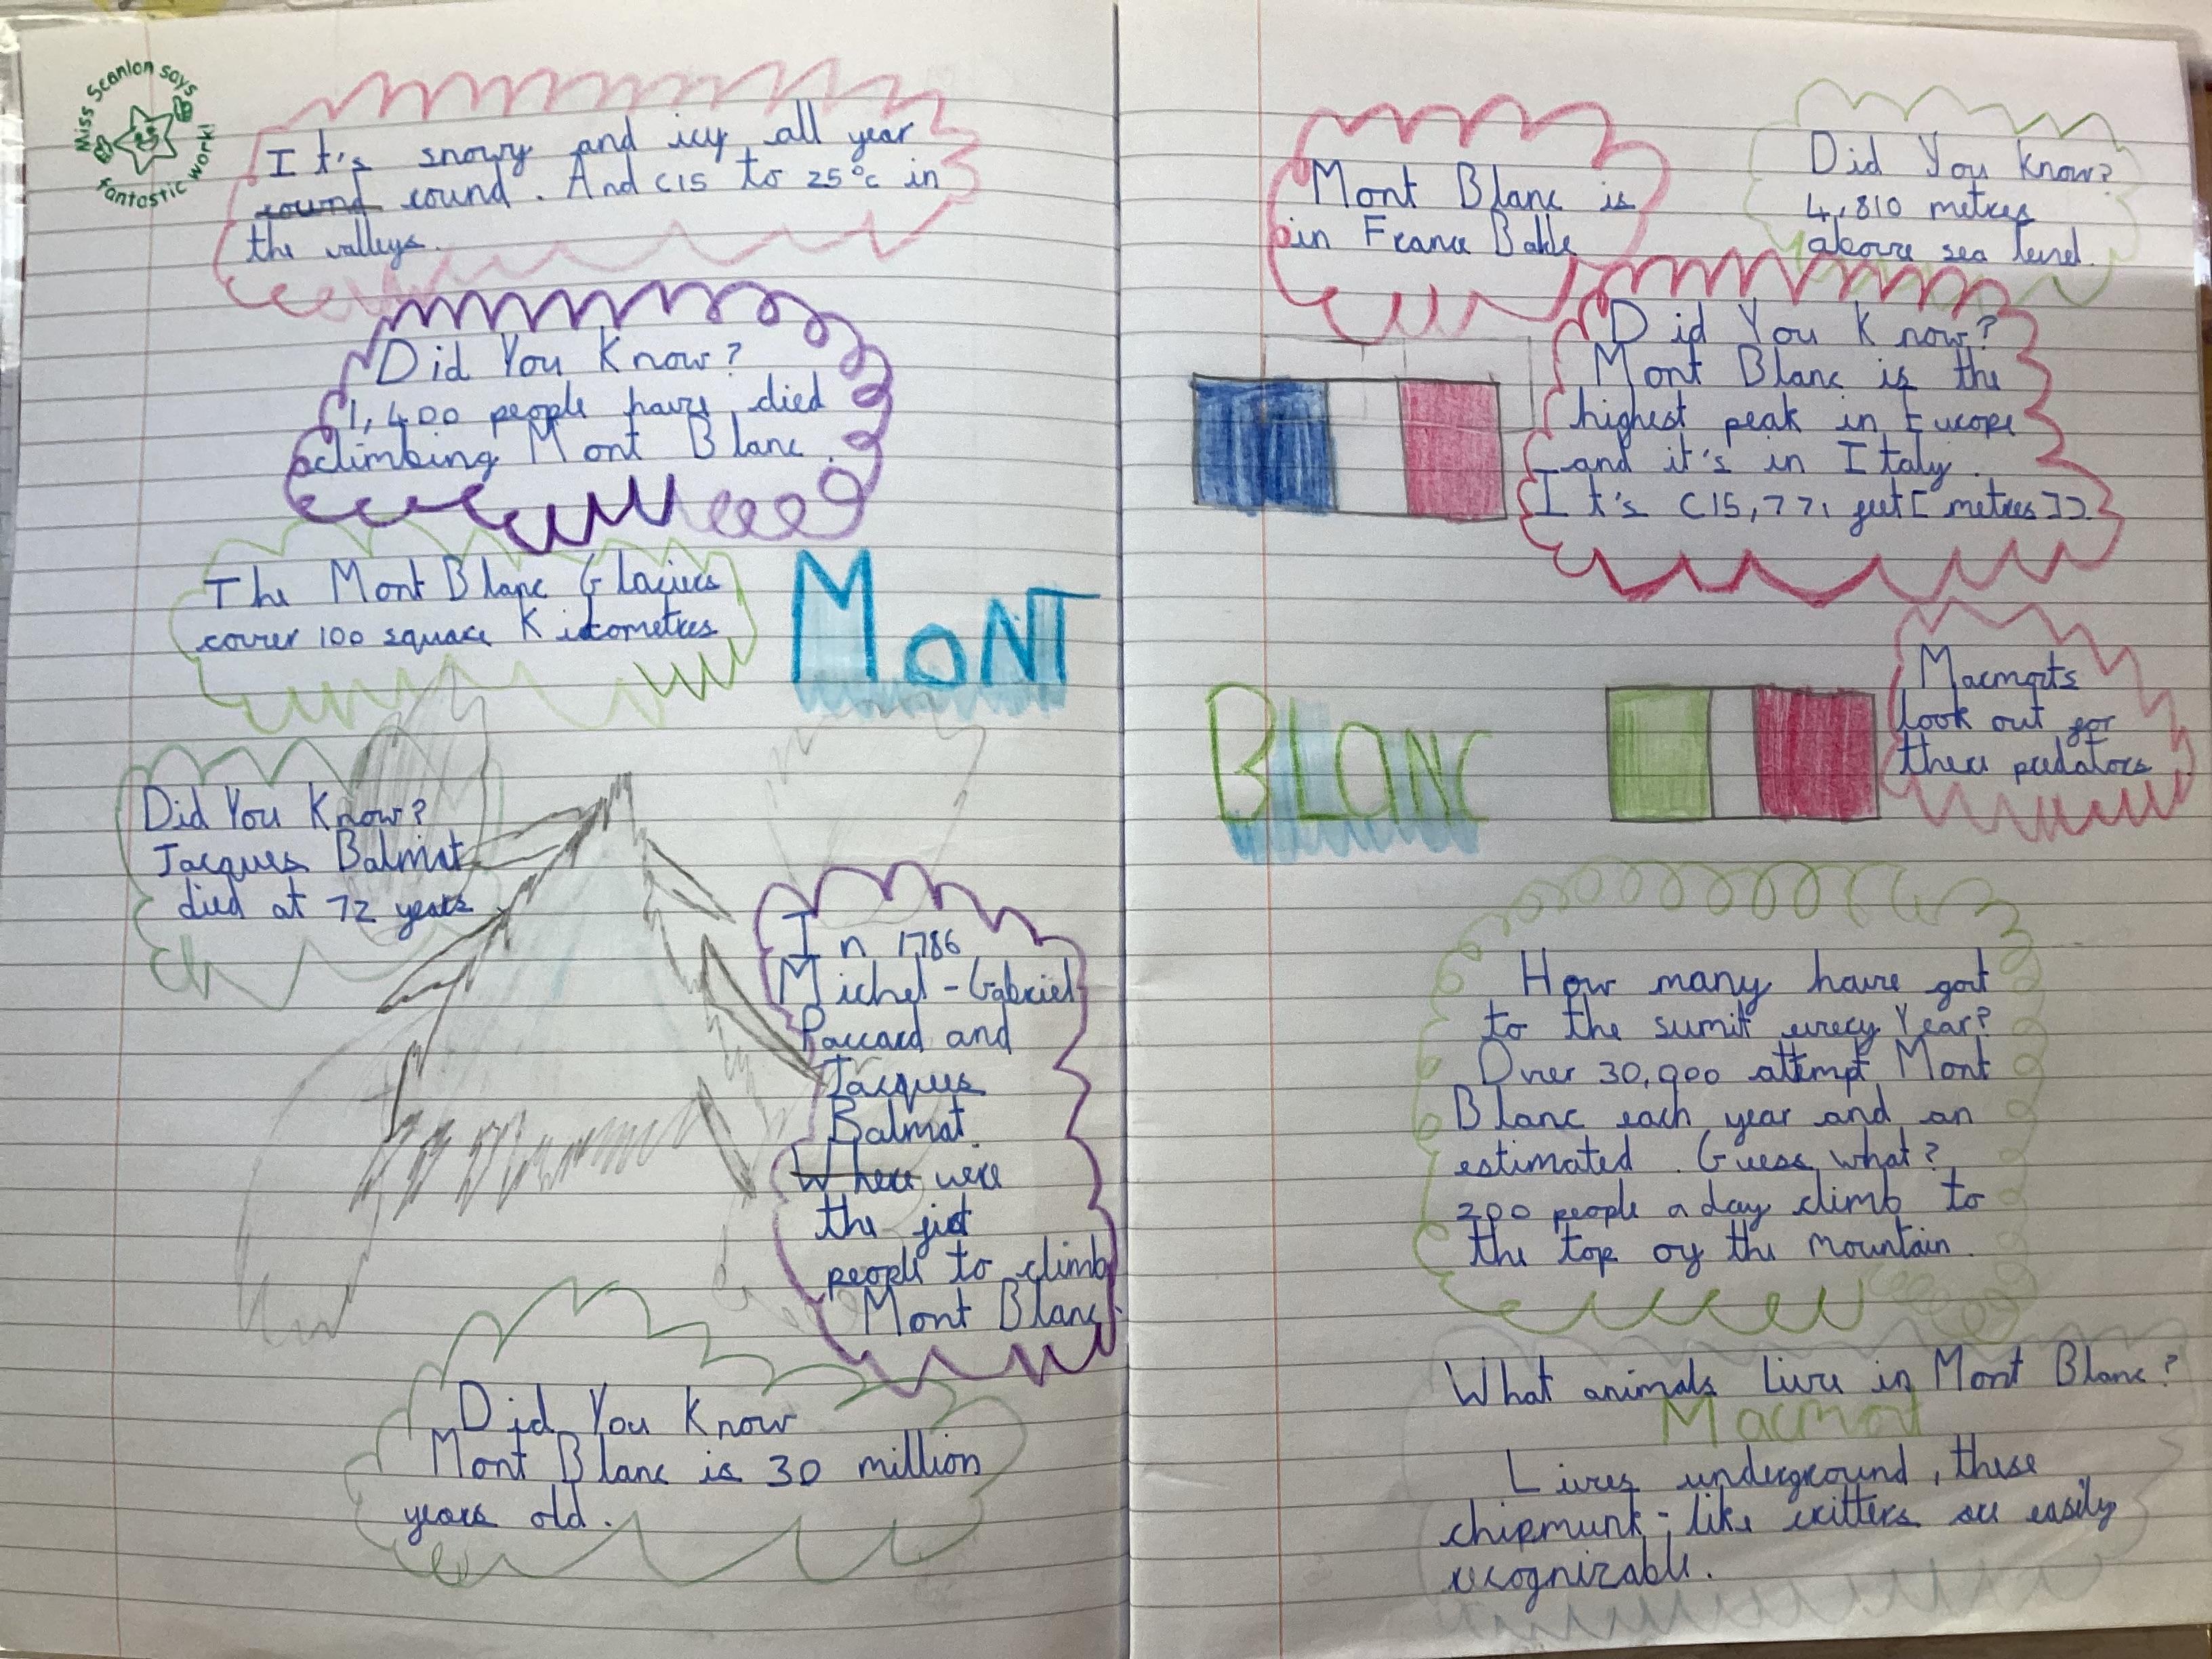 Miss Scanlon says
fantastic work!
It's snowy and icy all year
round round. And (15 to 25°c in
the valleys.
Did You Know?
1,400 people have died
climbing Mont Blanc.
The Mont Blanc Glaciers
cover 100 square Kilometres
MONT
Did You Know?
Jacques Balmat
died at 72 years
In 1786
Michel-Gabriel
Paccard and
Jacques
Balmat.
Where were
the
people to climb
Mont Blanc.
Did You Know
Mont Blanc is 30 million
years old.
Mont Blanc is
in France
Did You Know?
4,810 metres
above sea level.
Did You Know?
Mont Blanc is the
highest peak in Europe
and it's in Italy.
It's (15,771 feet [metres])
BLANC
Marmots
look out for
there predators
How many have got
to the sumit every Year?
Over 30,000 attempt Mont
Blanc each year and an
estimated. Guess what?
200 people a day climb to
the top of the mountain.
What animals live in Mont Blanc?
Marmot
Lives underground, these
chipmunk-like critters are easily
recognizable.